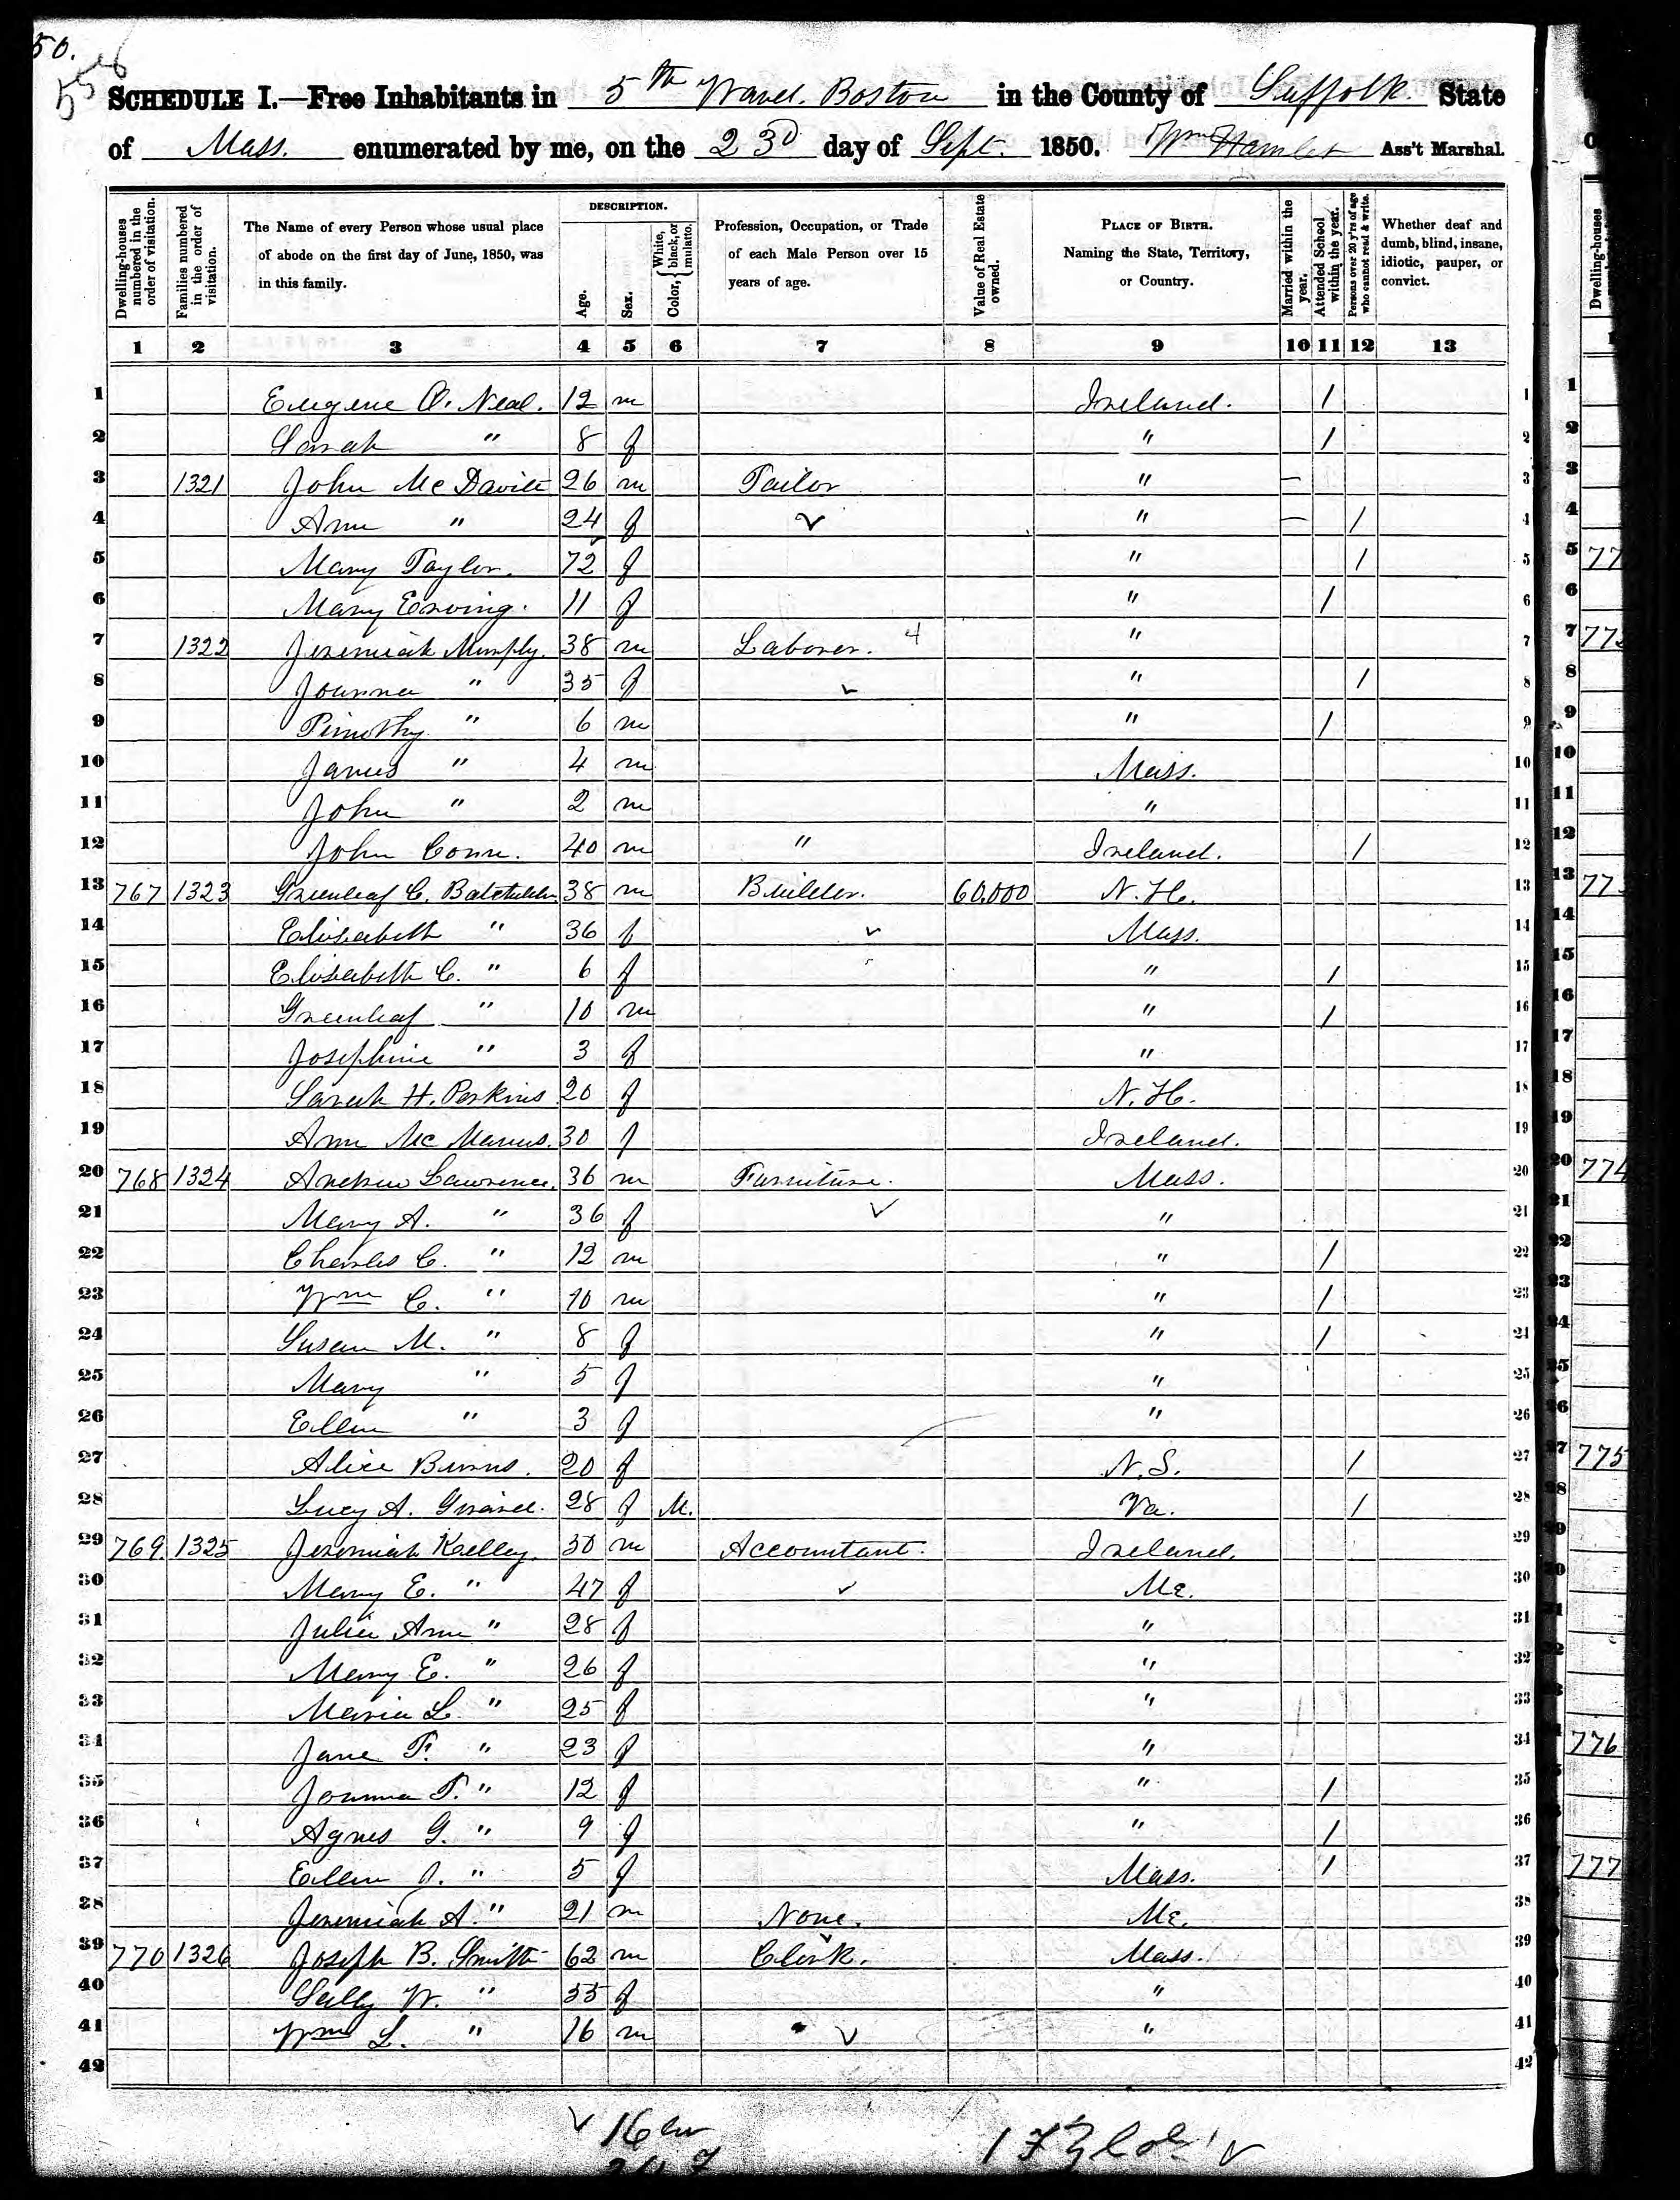 50.
558
SCHEDULE I.—Free Inhabitants in 5th Ward. Boston in the County of Suffolk. State
of Mass. enumerated by me, on the 23d day of Sept. 1850. Wm Hamlet Ass't Marshal.
Dwelling-houses numbered in the order of visitation.
Families numbered in the order of visitation.
The Name of every Person whose usual place of abode on the first day of June, 1850, was in this family.
DESCRIPTION.
Age.
Sex.
Color, { White, black, or mulatto.
Profession, Occupation, or Trade of each Male Person over 15 years of age.
Value of Real Estate owned.
PLACE OF BIRTH. Naming the State, Territory, or Country.
Married within the year.
Attended School within the year.
Persons over 20 y'rs of age who cannot read & write.
Whether deaf and dumb, blind, insane, idiotic, pauper, or convict.
1 2 3 4 5 6 7 8 9 10 11 12 13
1 Eugene O. Neal. 12 m Ireland. / 1
2 Sarah " 8 f " / 2
3 1321 John Mc Davitt 26 m Tailor " — 3
4 Ann " 24 f " — / 4
5 Mary Taylor. 72 f " / 5
6 Mary Erving. 11 f " / 6
7 1322 Jeremiah Murphy. 38 m Laborer. 4 " 7
8 Joanna " 35 f " / 8
9 Timothy " 6 m " / 9
10 James " 4 m Mass. 10
11 John " 2 m " 11
12 John Conn. 40 m " Ireland. / 12
13 767 1323 Greenleaf C. Batchelder 38 m Builder. 60,000 N. H. 13
14 Elisabeth " 36 f Mass. 14
15 Elisabeth C. " 6 f " / 15
16 Greenleaf " 10 m " / 16
17 Josephine " 3 f " 17
18 Sarah H. Perkins 20 f N. H. 18
19 Ann Mc Manus. 30 f Ireland. 19
20 768 1324 Andrew Lawrence. 36 m Furniture. Mass. 20
21 Mary A. " 36 f " 21
22 Charles C. " 12 m " / 22
23 Wm C. " 10 m " / 23
24 Susan M. " 8 f " / 24
25 Mary " 5 f " 25
26 Ellen " 3 f " 26
27 Alice Burns. 20 f N. S. / 27
28 Lucy A. 28 f M. Va. / 28
29 769. 1325 Jeremiah Kelley. 50 m Accountant. Ireland. 29
30 Mary E. " 47 f Me. 30
31 Julia Ann " 28 f " 31
32 Mary E. " 26 f " 32
33 Maria L. " 25 f " 33
34 Jane F. " 23 f " 34
35 Joanna T. " 12 f " / 35
36 Agnes G. " 9 f " / 36
37 Ellen J. " 5 f Mass. / 37
38 Jeremiah A. " 21 m None. Me. 38
39 770 1326 Joseph B. Smith 62 m Clerk. Mass. 39
40 Sally W. " 55 f " 40
41 Wm L. " 16 m " 41
42 42
16
773
774
775
776
777